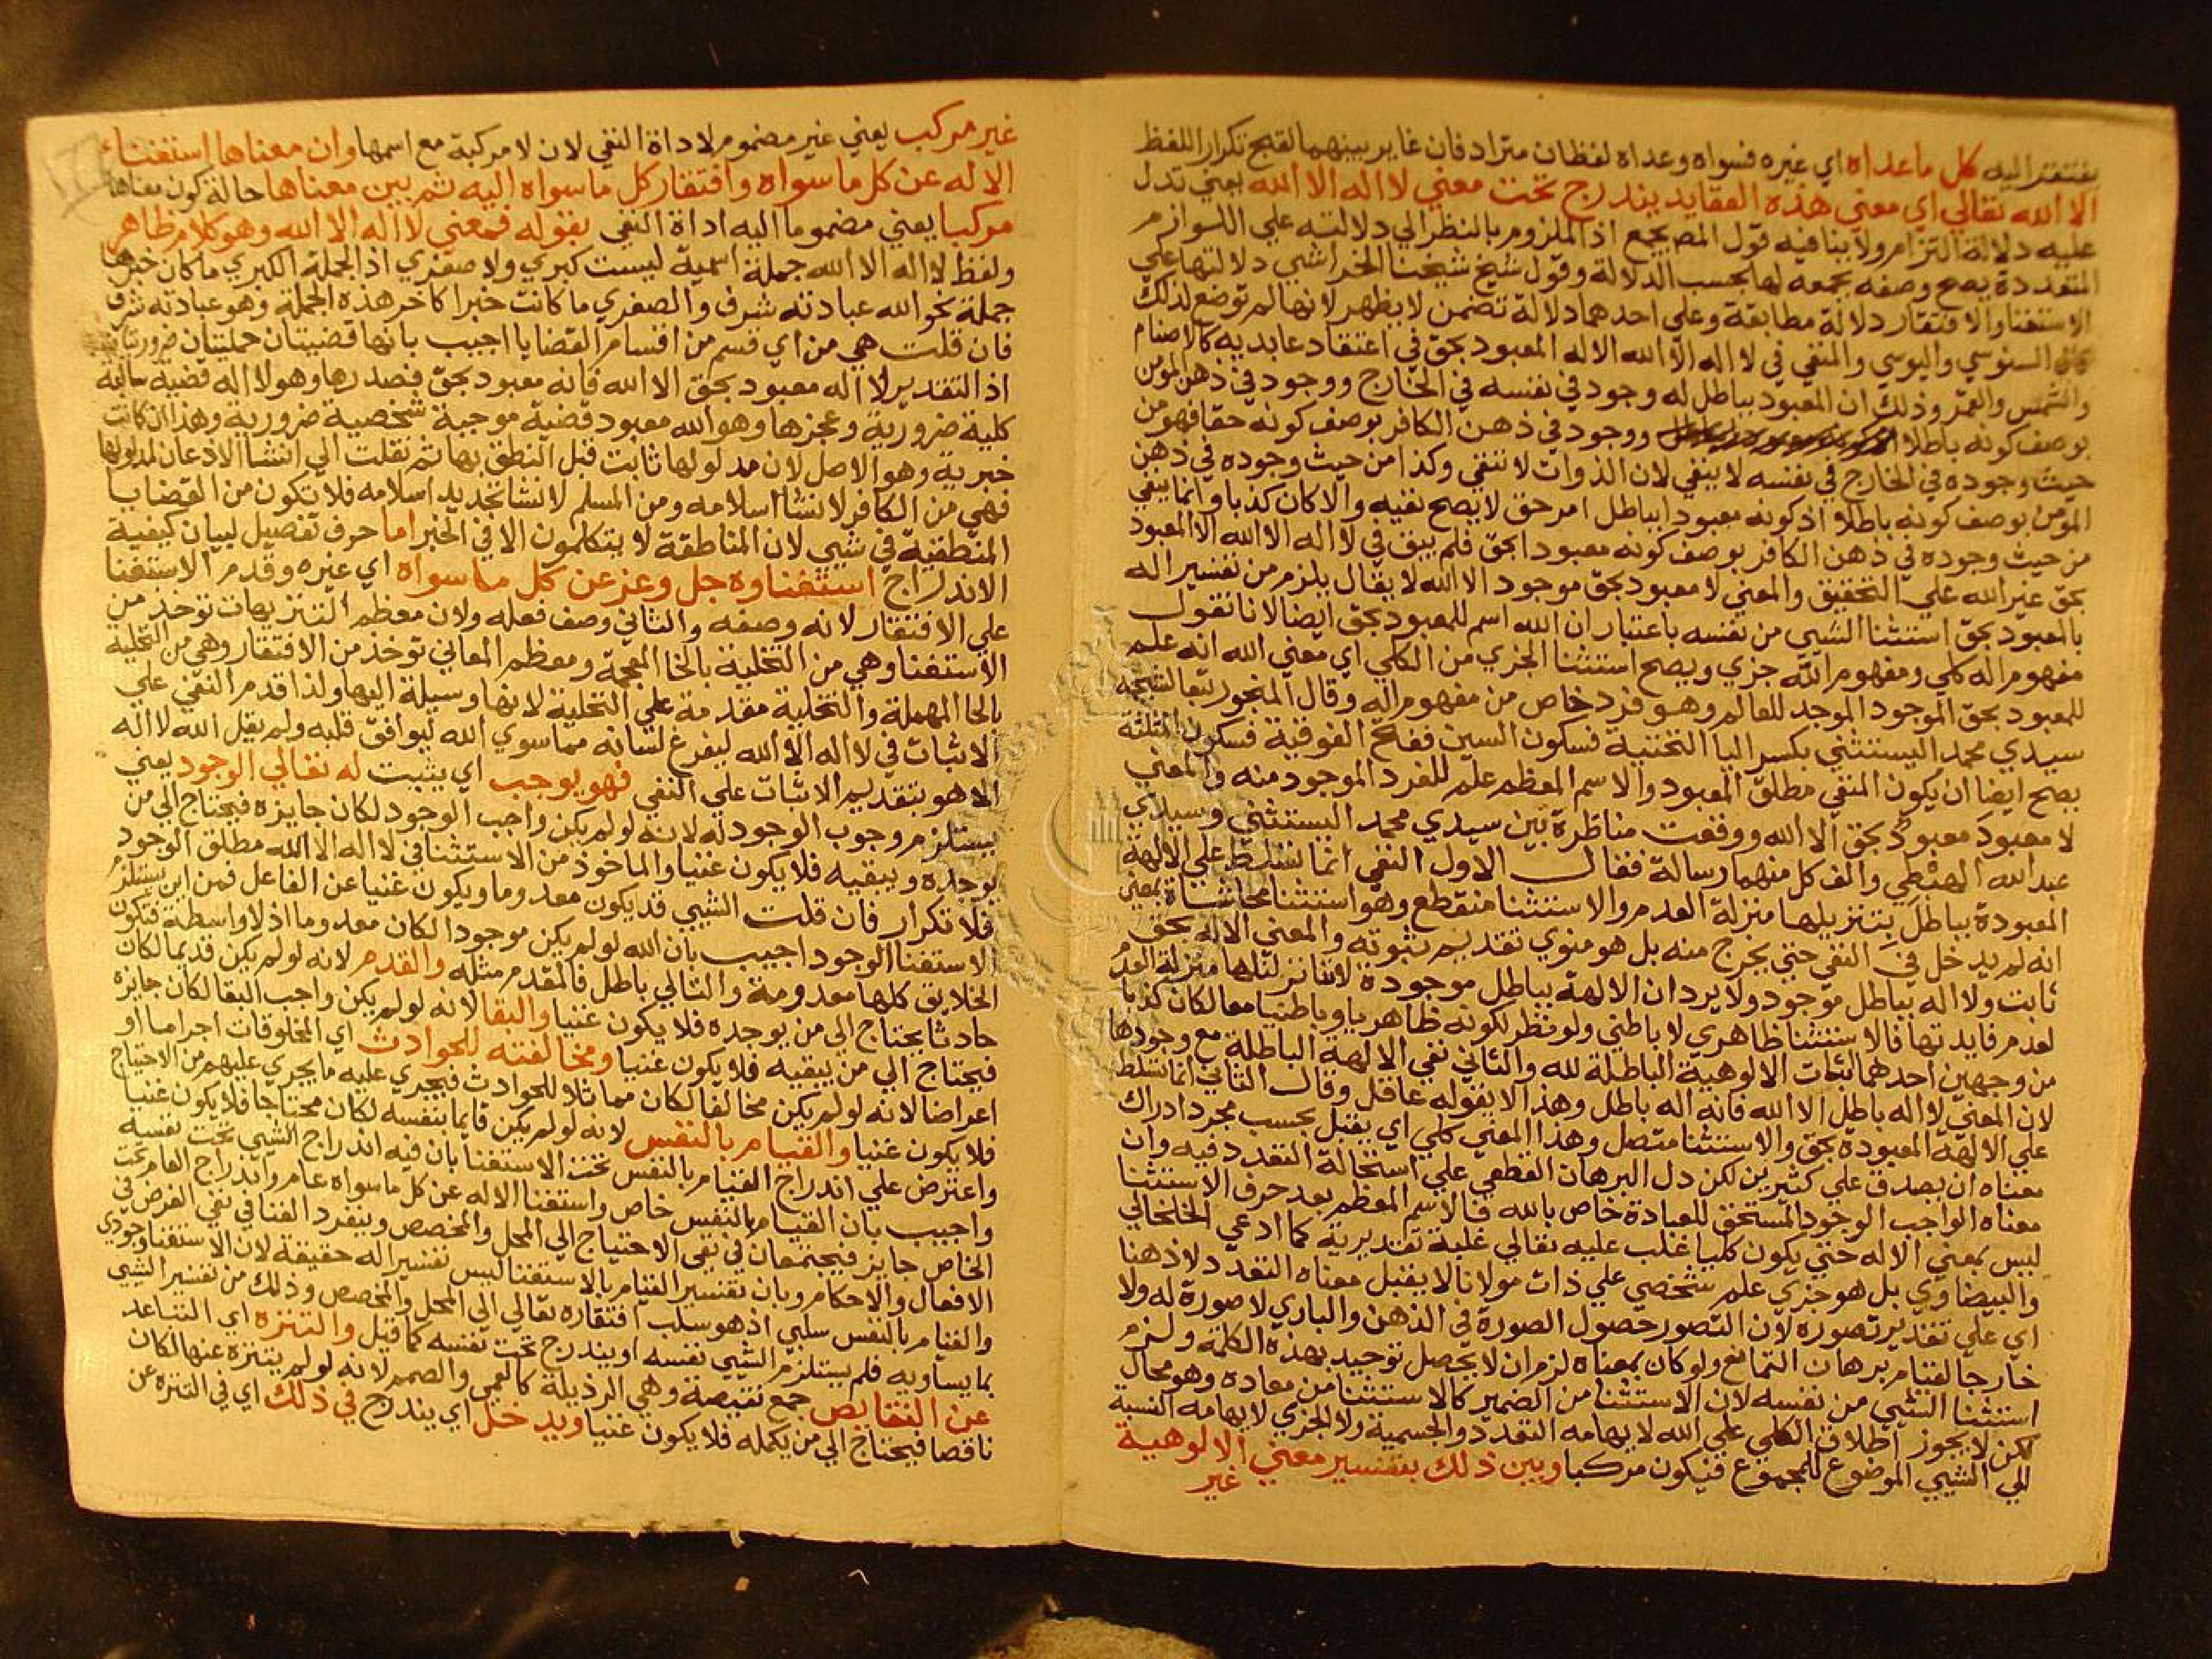 يفتقر اليه كل ما عداه اي غيره فسواه وعداه لفظان مترادفان غاير بينهما لقبح تكرار اللفظ
الا الله تعالي اي معني هذه العقايد يندرج تحت معني لا اله الا الله يعني تدل
عليه دلالة التزام ولا ينافيه قول المص يجمع اذ الملزوم بالنظر الي دلالته علي اللوازم
المتعددة يصح وصفه بجمعه لها بحسب الدلالة وقول شيخ شيخنا الخراشي دلالتها علي
الاستغنا والافتقار دلالة مطابقة وعلي احدهما دلالة تضمن لا يظهر لانها لم توضع لذلك
السنوسي واليوسي والمنفي في لا اله الا الله الاله المعبود بحق في اعتقاد عابديه كالاصنام
والشمس والقمر وذلك ان المعبود بباطل له وجود في نفسه في الخارج ووجود في ذهن المؤمن
بوصف كونه باطلا ووجود في ذهن الكافر بوصف كونه حقا فهو من
حيث وجوده في الخارج في نفسه لا ينفي لان الذوات لا تنتفي وكذا من حيث وجوده في ذهن
المؤمن بوصف كونه باطلا اذ كونه معبودا بباطل امر حق لا يصح نفيه والا كان كذبا وانما ينفي
من حيث وجوده في ذهن الكافر بوصف كونه معبودا بحق فلم ينف في لا اله الا الله الا المعبود
بحق غير الله علي التحقيق والمعني لا معبود بحق موجود الا الله لا يقال يلزم من تفسير اله
بالمعبود بحق استثنا الشي من نفسه باعتبار ان الله اسم للمعبود بحق ايضا لانا نقول
مفهوم اله كلي ومفهوم الله جزي ويصح استثنا الجزي من الكلي اي معني الله انه علم
للمعبود بحق الموجود الموجد للعالم وهو فرد خاص من مفهوم اله وقال المنجور تبعا لشيخه
سيدي محمد اليستثني بكسر اليا التحتية فسكون السين ففتح الفوقية فسكون المثلثة
يصح ايضا ان يكون المنفي مطلق المعبود والاسم المعظم علم للفرد الموجود منه والمعني
لا معبود معبود بحق الا الله ووقعت مناظرة بين سيدي محمد اليستثني وسيدي
عبد الله الهبطي والف كل منهما رسالة فقال الاول النفي انما تسلط علي الالهة
المعبودة بباطل بتنزيلها منزلة العدم والاستثنا منقطع وهو استثنا محاشاة بمعني
انه لم يدخل في النفي حتي يخرج منه بل هو منوي تقديم ثبوته والمعني الاله بحق
ثابت ولا اله بباطل موجود ولا يرد ان الالهة بباطل موجودة لاننا نزلناها منزلة العدم
لعدم فايدتها فالاستثنا ظاهري لا باطني ولو نظر لكونه ظاهريا وباطنيا معا لكان كذبا
من وجهين احدهما اثبات الالوهية الباطلة لله والثاني نفي الالهة الباطلة مع وجودها
لان المعني لا اله باطل الا الله فانه اله باطل وهذا لا يقوله عاقل وقال الثاني انما تسلط
علي الالهة المعبودة بحق والاستثنا متصل وهذا المعني كلي اي يقبل بحسب مجرد ادراك
معناه ان يصدق علي كثيرين لكن دل البرهان القطعي علي استحالة التعدد فيه وان
معناه الواجب الوجود المستحق للعبادة خاص بالله فالاسم المعظم بعد حرف الاستثنا
ليس بمعني الاله حتي يكون كليا غلب عليه تعالي غلبة تقديرية كما ادعي الخلخالي
والبيضاوي بل هو جزي علم شخصي علي ذات مولانا لا يقبل معناه التعدد لا ذهنا
اي علي تقدير تصوره لان التصور حصول الصورة في الذهن والباري لا صورة له ولا
خارجا لقيام برهان التمانع ولو كان بمعناه لزم ان لا يحصل توحيد بهذه الكلمة ولزم
استثنا الشي من نفسه لان الاستثنا من الضمير كالاستثنا من معاده وهو محال
لكن لا يجوز اطلاق الكلي علي الله لايهامه التعدد والجسمية ولا الجزي لايهامه النسبة
الي الشي الموضوع للمجموع فيكون مركبا وبين ذلك بتفسير معني الالوهية
غير
غير مركب يعني غير مضموم لاداة النفي لان لا مركبة مع اسمها وان معناها استغناء
الاله عن كل ما سواه وافتقار كل ما سواه اليه ثم بين معناها حالة كون معناها
مركبا يعني مضموما اليه اداة النفي بقوله فمعني لا اله الا الله وهو كلام ظاهر
ولفظ لا اله الا الله جملة اسمية ليست كبري ولا صغري اذ الجملة الكبري ما كان خبرها
جملة نحو الله عبادته شرف والصغري ما كانت خبرا كاخر هذه الجملة وهو عبادته شرف
فان قلت هي من اي قسم من اقسام القضايا اجيب بانها قضيتان حمليتان ضروريتان
اذ التقدير لا اله معبود بحق الا الله فانه معبود بحق فصدرها وهو لا اله قضية سالبة
كلية ضرورية وعجزها وهو الله معبود قضية موجبة شخصية ضرورية وهذا ان كانت
خبرية وهو الاصل لان مدلولها ثابت قبل النطق بها ثم نقلت الي انشا الاذعان لمدلولها
فهي من الكافر لانشا اسلامه ومن المسلم لانشا تجديد اسلامه فلا يكون من القضايا
المنطقية في شي لان المناطقة لا يتكلمون الا في الخبر اما حرف تفصيل لبيان كيفية
الاندراج استغناوه جل وعز عن كل ما سواه اي غيره وقدم الاستغنا
علي الافتقار لانه وصفه والثاني وصف فعله ولان معظم التنزيهات توخذ من
الاستغنا وهي من التخلية بالخا المعجمة ومعظم المعاني توخذ من الافتقار وهي من التحلية
بالحا المهملة والتخلية مقدمة علي التحلية لانها وسيلة اليها ولذا قدم النفي علي
الاثبات في لا اله الا الله ليفرغ لسانه مما سوي الله ليوافق قلبه ولم يقل الله لا اله
الا هو بتقديم الاثبات علي النفي فهو يوجب اي يثبت له تعالي الوجود يعني
يستلزم وجوب الوجود له لانه لو لم يكن واجب الوجود لكان جايزه فيحتاج الي من
يوجده ويبقيه فلا يكون غنيا والماخوذ من الاستثنا في لا اله الا الله مطلق الوجود
فلا تكرار فان قلت الشي قد يكون معدوما ويكون غنيا عن الفاعل فمن اين يستلزم
الاستغنا الوجود اجيب بان الله لو لم يكن موجودا لكان معدوما اذ لا واسطة فتكون
الخلايق كلها معدومة والتالي باطل فالمقدم مثله والقدم لانه لو لم يكن قديما لكان
حادثا يحتاج الي من يوجده فلا يكون غنيا والبقا لانه لو لم يكن واجب البقا لكان جايزه
فيحتاج الي من يبقيه فلا يكون غنيا ومخالفته للحوادث اي المخلوقات اجراما او
اعراضا لانه لو لم يكن مخالفا لكان مماثلا للحوادث فيجري عليه ما يجري عليهم من الاحتياج
فلا يكون غنيا والقيام بالنفس لانه لو لم يكن قايما بنفسه لكان محتاجا فلا يكون غنيا
واعترض علي اندراج القيام بالنفس تحت الاستغنا بان فيه اندراج الشي تحت نفسه
واجيب بان القيام بالنفس خاص واستغنا الاله عن كل ما سواه عام واندراج العام تحت
الخاص جايز فيجتمعان في نفي الاحتياج الي المحل والمخصص وينفرد الغنا في نفي الغرض في
الافعال والاحكام وبان تفسير القيام بالاستغنا ليس تفسيرا له حقيقة لان الاستغنا وجودي
والقيام بالنفس سلبي اذ هو سلب افتقاره تعالي الي المحل والمخصص وذلك من تفسير الشي
بما يساويه فلم يستلزم الشي نفسه او يندرج تحت نفسه كما قيل والتنزه اي التباعد
عن النقايص جمع نقيصة وهي الرذيلة كالعمي والصمم لانه لو لم يتنزه عنها لكان
ناقصا فيحتاج الي من يكمله فلا يكون غنيا ويدخل اي يندرج في ذلك اي في التنزه عن